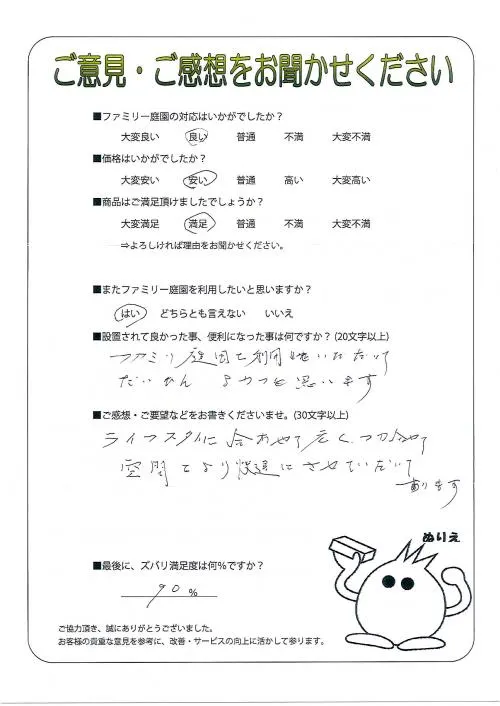 ご意見・ご感想をお聞かせください
■ファミリー庭園の対応はいかがでしたか？
大変良い 良い 普通 不満 大変不満
■価格はいかがでしたか？
大変安い 安い 普通 高い 大変高い
■商品はご満足頂けましたでしょうか？
大変満足 満足 普通 不満 大変不満
⇒よろしければ理由をお聞かせください。
■またファミリー庭園を利用したいと思いますか？
はい どちらとも言えない いいえ
■設置されて良かった事、便利になった事は何ですか？(20文字以上)
ファミリ庭園を利用 いただいて
だいへん よかつと思います
■ご感想・ご要望などをお書きくださいませ。(30文字以上)
ライフスタイに合わせて広く
空間をより快適にさせていだいて
あります
ぬりえ
■最後に、ズバリ満足度は何％ですか？
90％
ご協力頂き、誠にありがとうございました。
お客様の貴重な意見を参考に、改善・サービスの向上に活かして参ります。